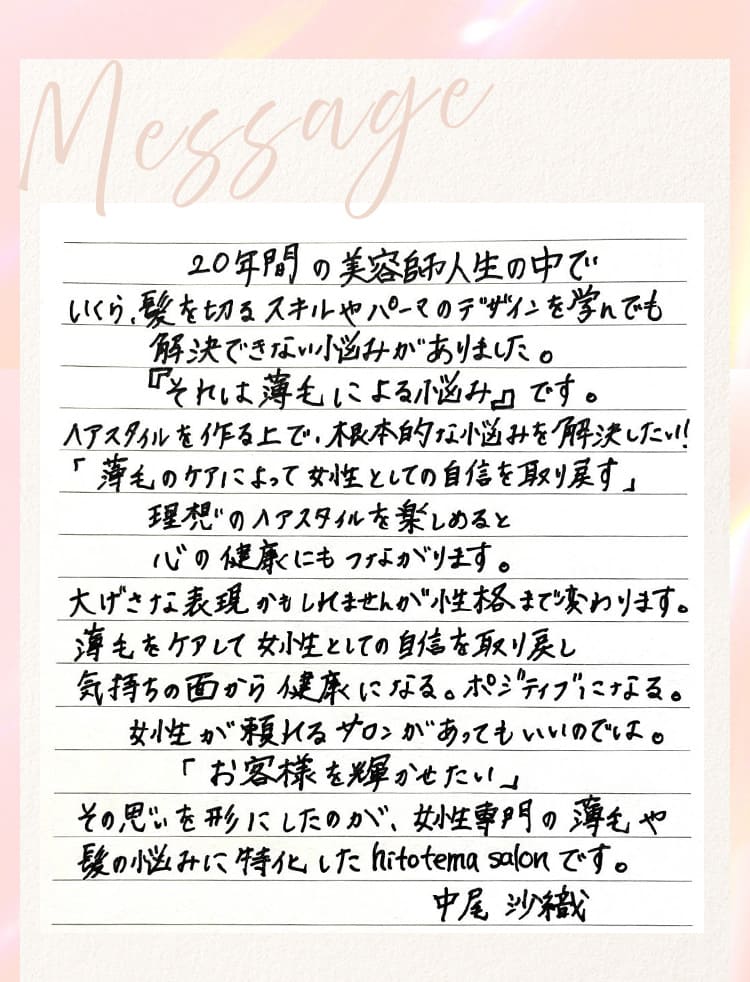 Message
20年間の美容師人生の中で
いくら、髪を切るスキルやパーマのデザインを学んでも
解決できない悩みがありました。
『それは薄毛による悩み』です。
ヘアスタイルを作る上で、根本的な悩みを解決したい!!
「薄毛のケアによって女性としての自信を取り戻す」
理想のヘアスタイルを楽しめると
心の健康にもつながります。
大げさな表現かもしれませんが性格まで変わります。
薄毛をケアして女性としての自信を取り戻し
気持ちの面から健康になる。ポジティブになる。
女性が頼れるサロンがあってもいいのでは。
「お客様を輝かせたい」
その思いを形にしたのが、女性専門の薄毛や
髪の悩みに特化したhitotema salonです。
中尾 沙織